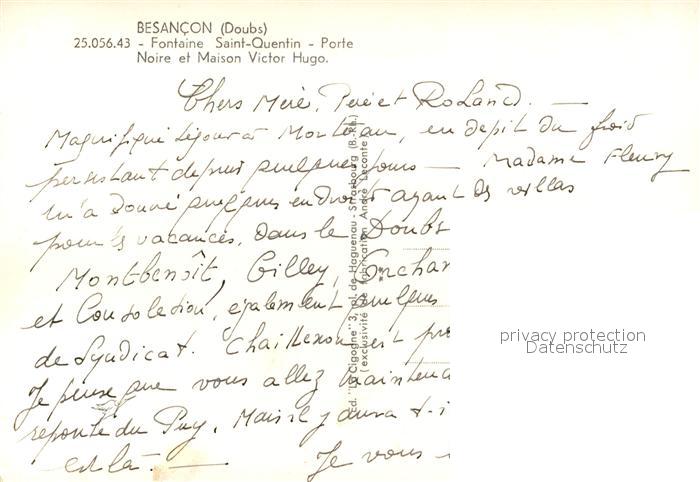 BESANÇON (Doubs)
25.056.43 - Fontaine Saint-Quentin - Porte
Noire et Maison Victor Hugo.
Chers Mère, Père et Roland. —
Magnifique séjour à Morteau, en dépit du froid
persistant depuis quelques jours — Madame Fleury
m'a donné quelques endroits ayant des villas
pour les vacances, dans le Doubs
Montbenoît, Gilley,
et Consolation, également quelques
de Syndicat. Chaillexon est
Je pense que vous allez
réponse du Puy. Mais il y aura t-i
est là. — Je vous
Ed. "La Cigogne" 3, de Haguenau - Strasbourg (B.-Rh.)
(exclusivité de fabrication André Leconte)
privacy protection
Datenschutz